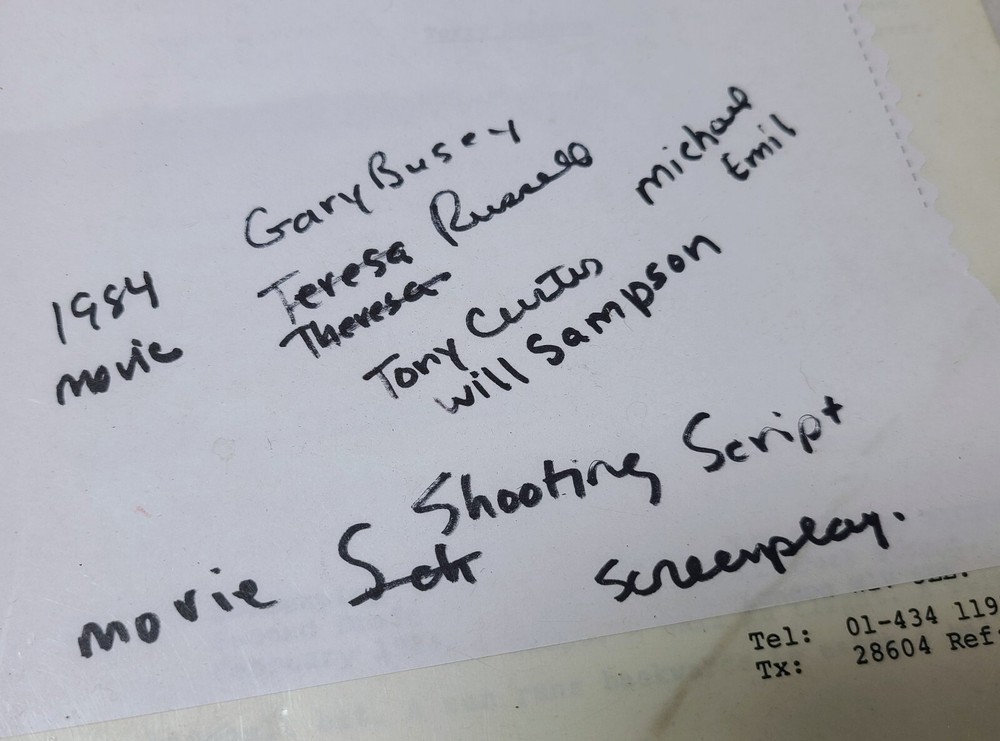 Gary Busey
Michael
Emil
1984
movie
Teresa Russell
Theresa
Tony Curtis
Will Sampson
Shooting Script
movie Set
Screenplay.
Tel: 01-434 119
Tx: 28604 Ref: